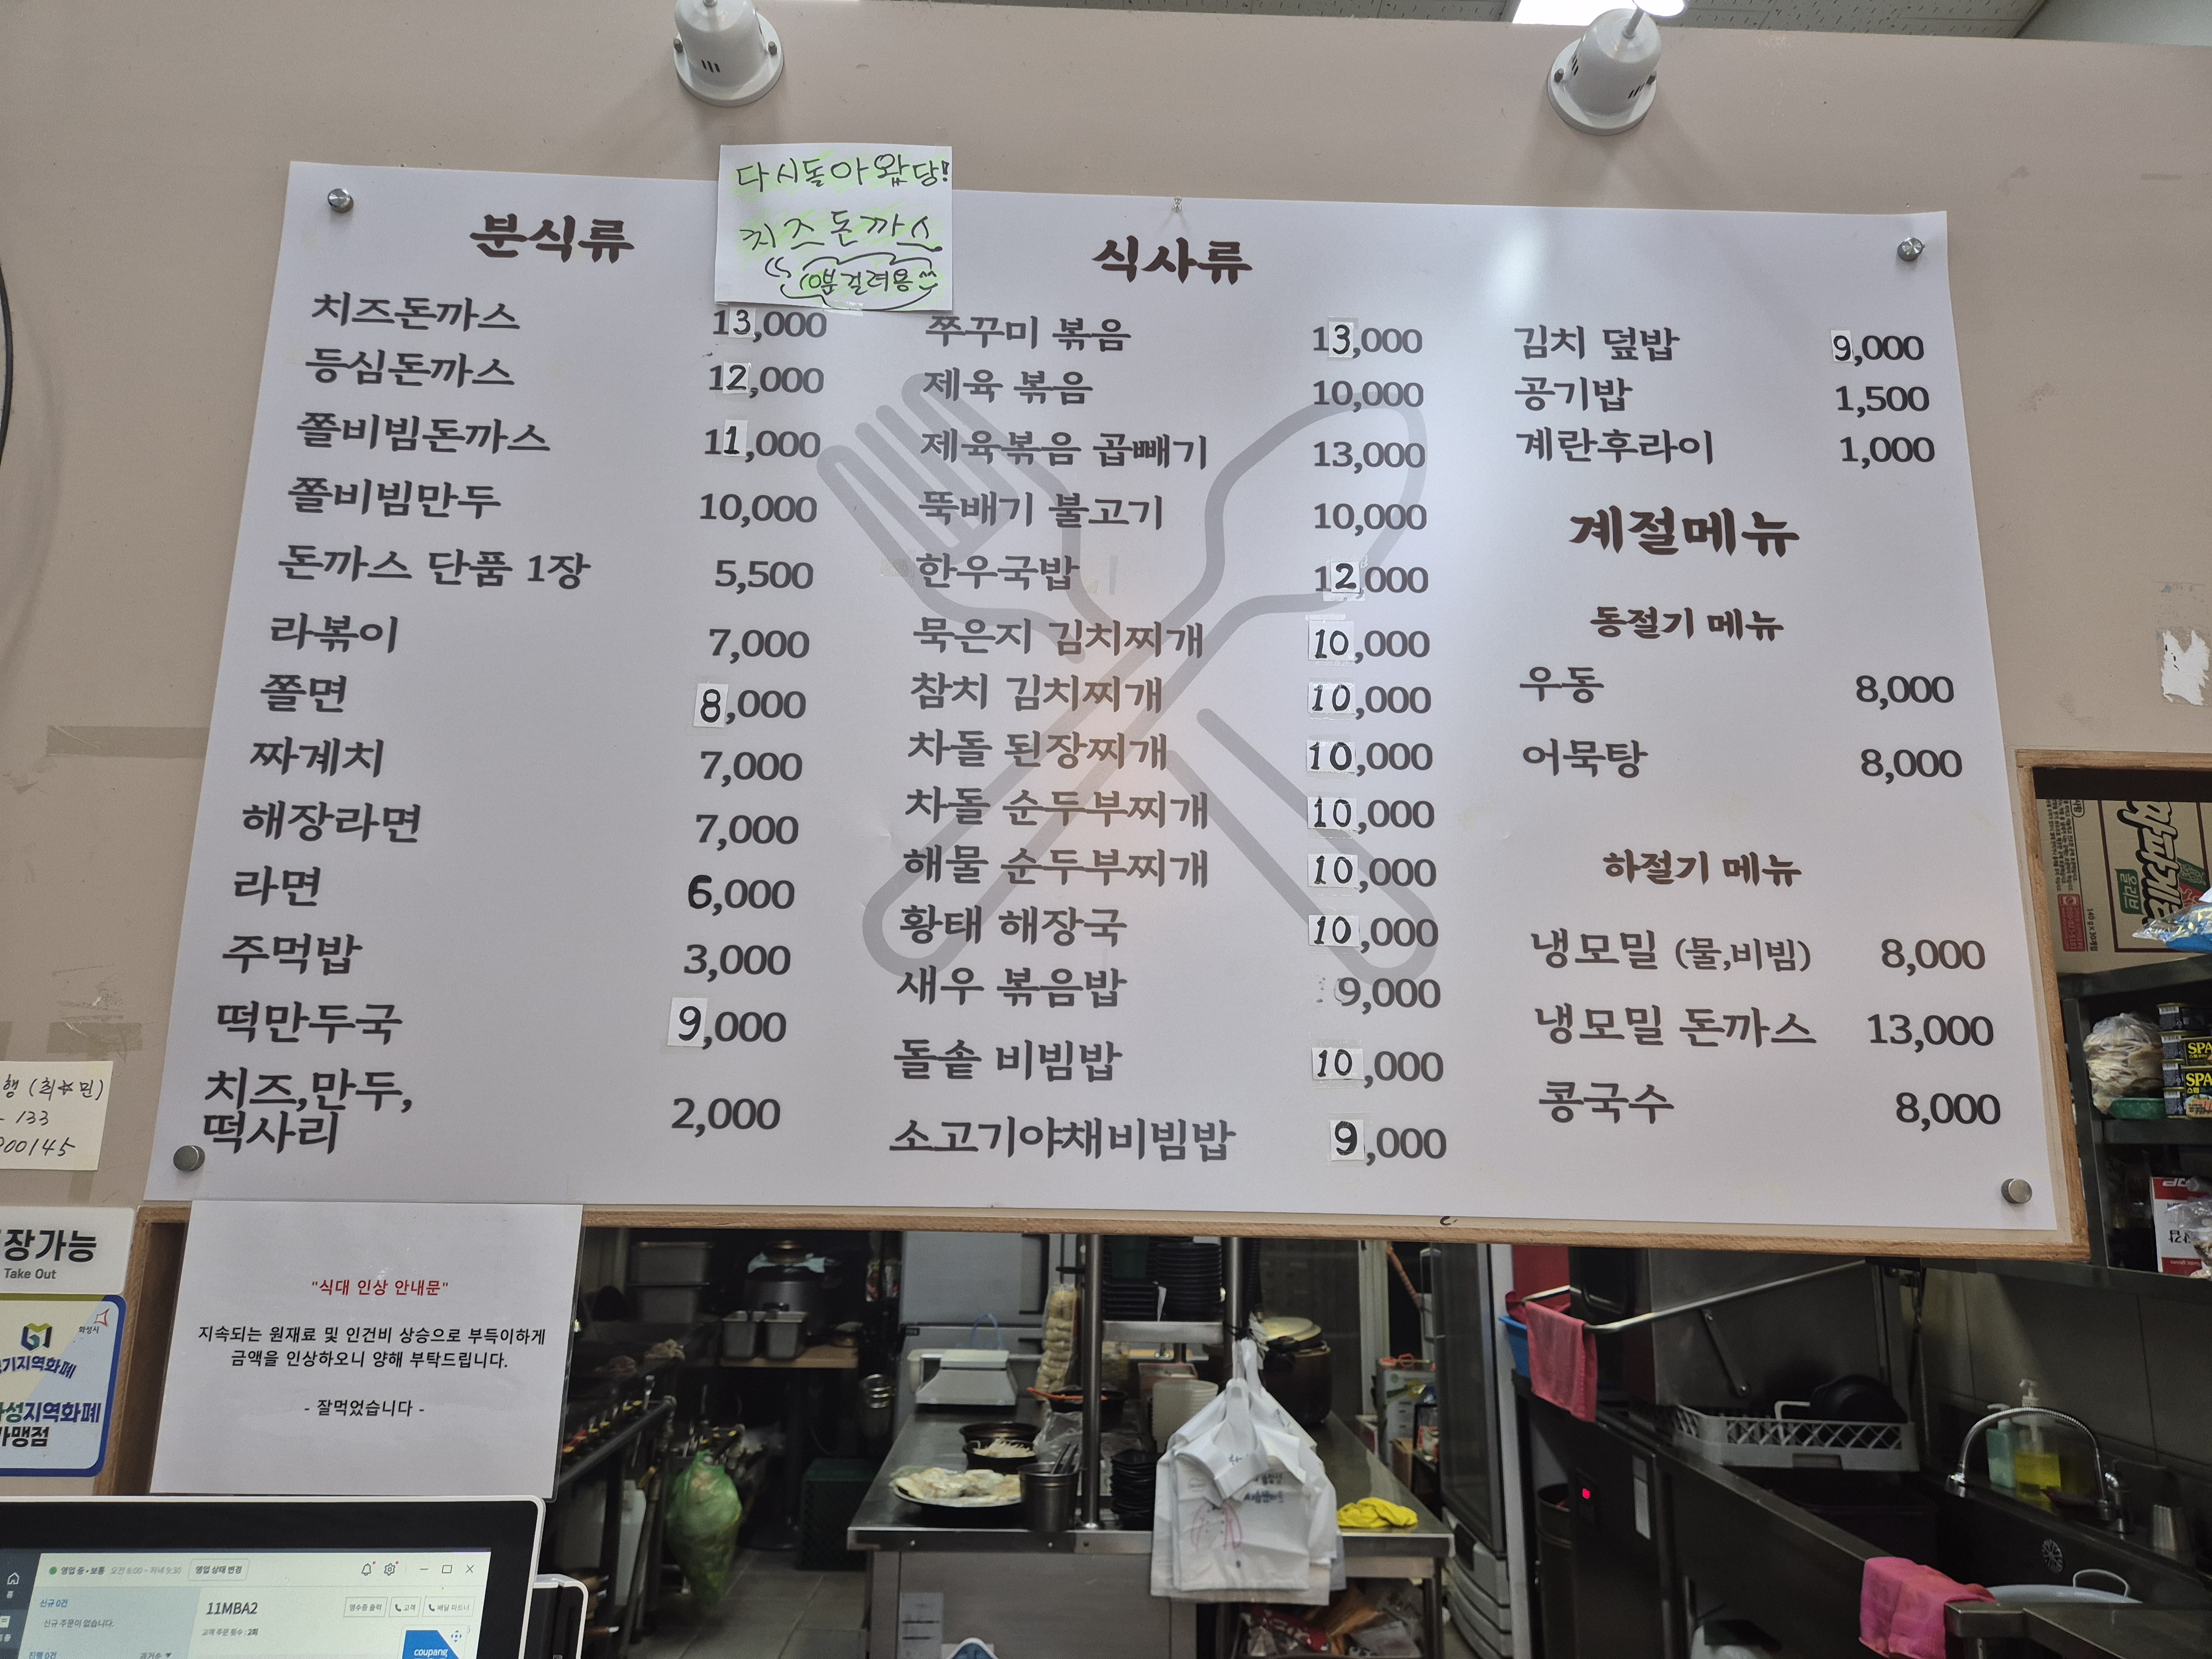 다시돌아왔당!
치즈돈까스
10분걸려용^^
분식류
치즈돈까스 13,000
등심돈까스 12,000
쫄비빔돈까스 11,000
쫄비빔만두 10,000
돈까스 단품 1장 5,500
라볶이 7,000
쫄면 8,000
짜계치 7,000
해장라면 7,000
라면 6,000
주먹밥 3,000
떡만두국 9,000
치즈,만두,
떡사리 2,000
식사류
쭈꾸미 볶음 13,000
제육 볶음 10,000
제육볶음 곱빼기 13,000
뚝배기 불고기 10,000
한우국밥 12,000
묵은지 김치찌개 10,000
참치 김치찌개 10,000
차돌 된장찌개 10,000
차돌 순두부찌개 10,000
해물 순두부찌개 10,000
황태 해장국 10,000
새우 볶음밥 9,000
돌솥 비빔밥 10,000
소고기야채비빔밥 9,000
김치 덮밥 9,000
공기밥 1,500
계란후라이 1,000
계절메뉴
동절기 메뉴
우동 8,000
어묵탕 8,000
하절기 메뉴
냉모밀 (물,비빔) 8,000
냉모밀 돈까스 13,000
콩국수 8,000
행 (최☆민)
- 133
900145
장가능
Take Out
화성시
기지역화폐
성지역화폐
가맹점
"식대 인상 안내문"
지속되는 원재료 및 인건비 상승으로 부득이하게
금액을 인상하오니 양해 부탁드립니다.
- 잘먹었습니다 -
영업 중 • 보통 오전 6:00 ~ 저녁 9:30 영업 상태 변경
홈
신규 0건
신규 주문이 없습니다.
진행 0건 과거순
11MBA2
영수증 출력 고객 배달 파트너
고객 주문 횟수 : 2회
coupang
짜파게티
올리브
140g x 30개입
SPA
SPA